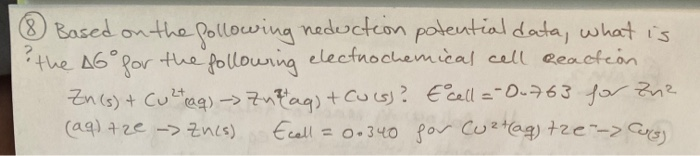 ⑧ Based on the following reduction potential data, what is
? the ΔG° for the following electrochemical cell Reaction
Zn(s) + Cu²⁺(aq) -> Zn²⁺(aq) + Cu(s)? E°cell = -0.763 for Zn²
(aq) + 2e -> Zn(s) Ecell = 0.340 for Cu²⁺(aq) + 2e⁻ -> Cu(s)